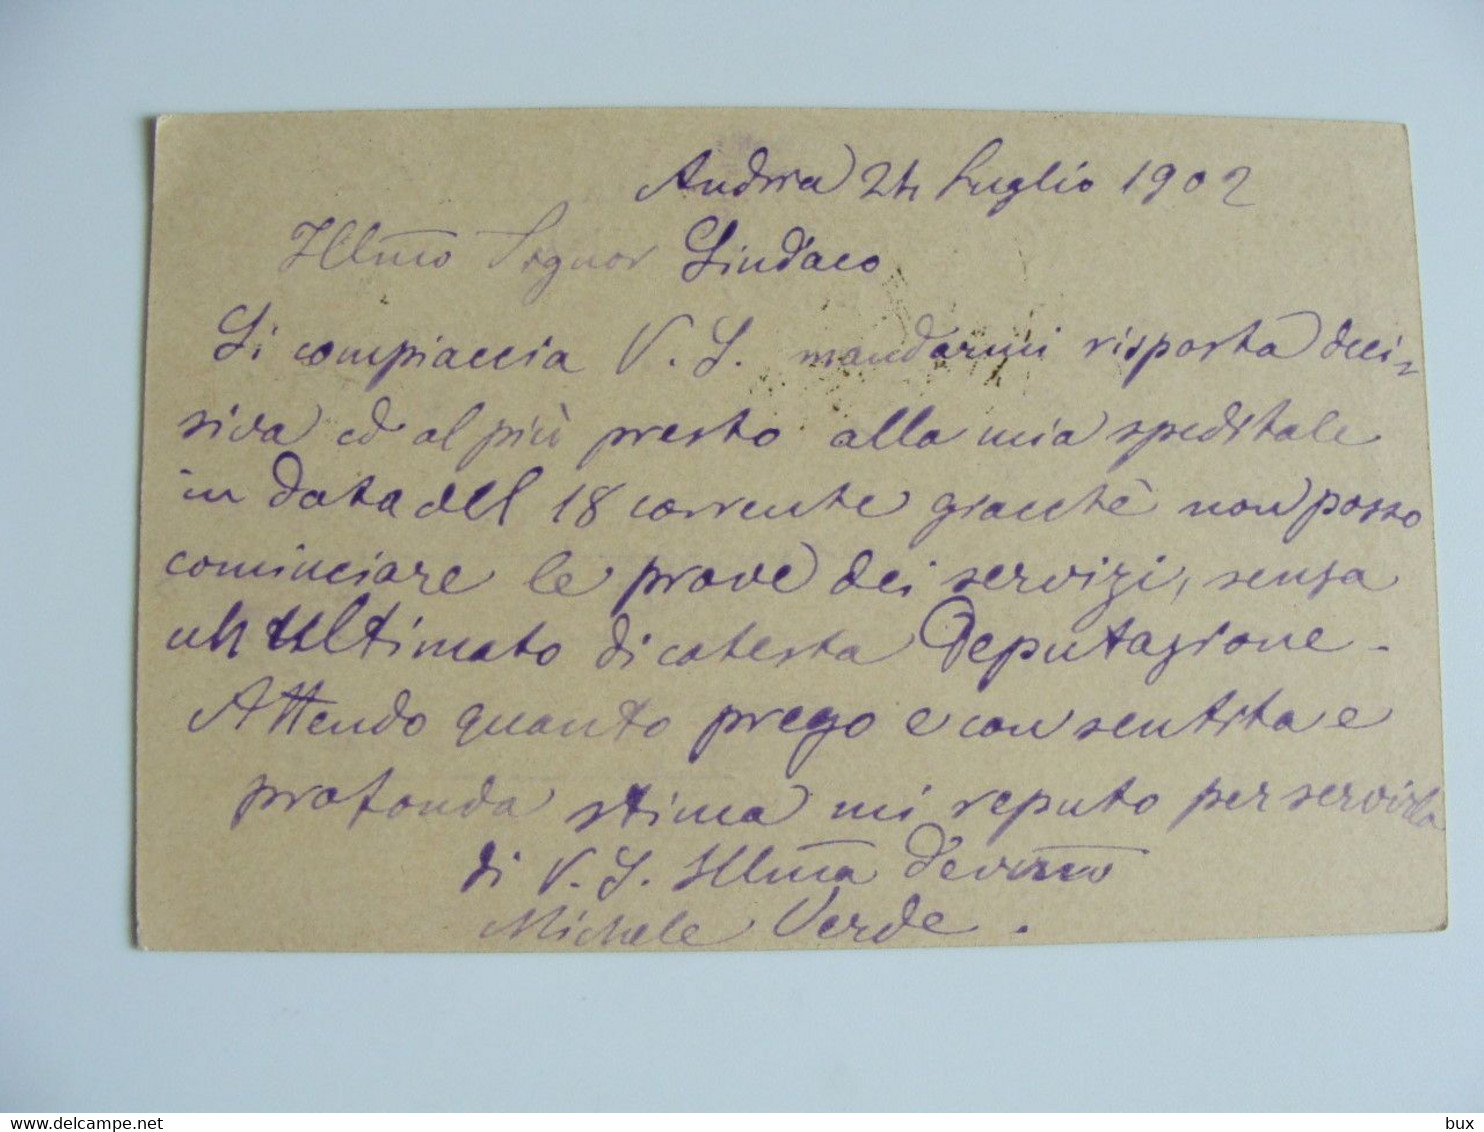 Andria 24 Luglio 1902
Illmo Signor Sindaco
Si compiaccia V. S. mandarmi risposta deci-
siva ed al più presto alla mia speditale
in data del 18 corrente giacchè non posso
cominciare le prove dei servizi, senza
ultimato di cotesta Deputazione -
Attendo quanto prego e con sentita e
profonda stima mi reputo per servirla
di V. S. Illma Devmo
Michele Verde.
www.delcampe.net
bux